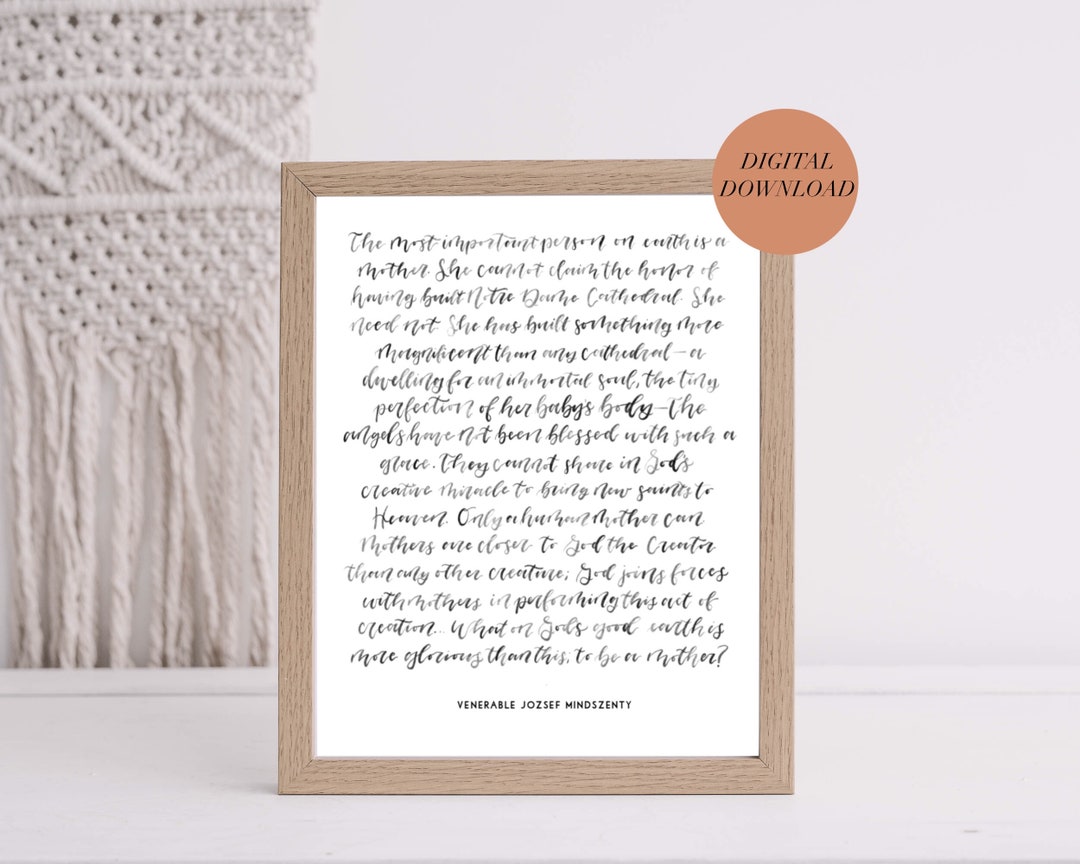 The most important person on earth is a
mother. She cannot claim the honor of
having built Notre Dame Cathedral. She
need not. She has built something more
magnificent than any cathedral—a
dwelling for an immortal soul, the tiny
perfection of her baby's body—The
angels have not been blessed with such a
grace. They cannot share in God's
creative miracle to bring new saints to
Heaven. Only a human mother can
Mothers are closer to God the Creator
than any other creature; God joins forces
with mothers in performing this act of
creation... What on God's good earth is
more glorious than this; to be a mother?
VENERABLE JOZSEF MINDSZENTY
DIGITAL
DOWNLOAD